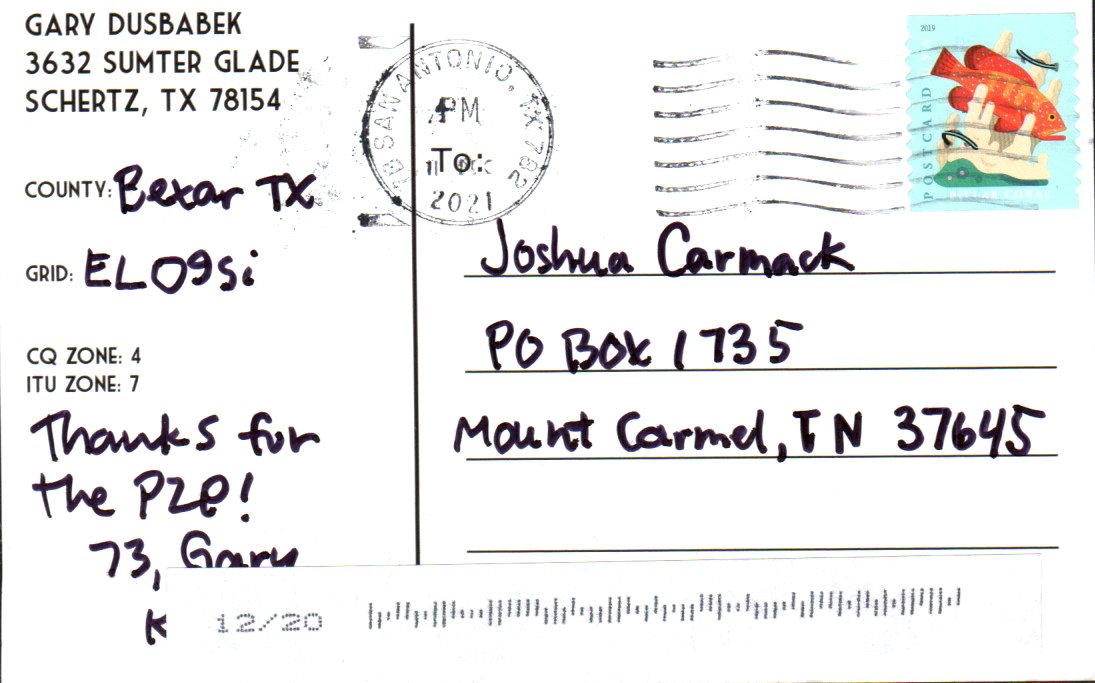 GARY DUSBABEK
3632 SUMTER GLADE
SCHERTZ, TX 78154
COUNTY: Bexar TX
GRID: EL09si
CQ ZONE: 4
ITU ZONE: 7
Thanks for
the P2P!
73, Gary
K
12/20
SAN ANTONIO, TX 782
PM
To:
2021
2019
POSTCARD
Joshua Carmack
PO Box 1735
Mount Carmel, TN 37645